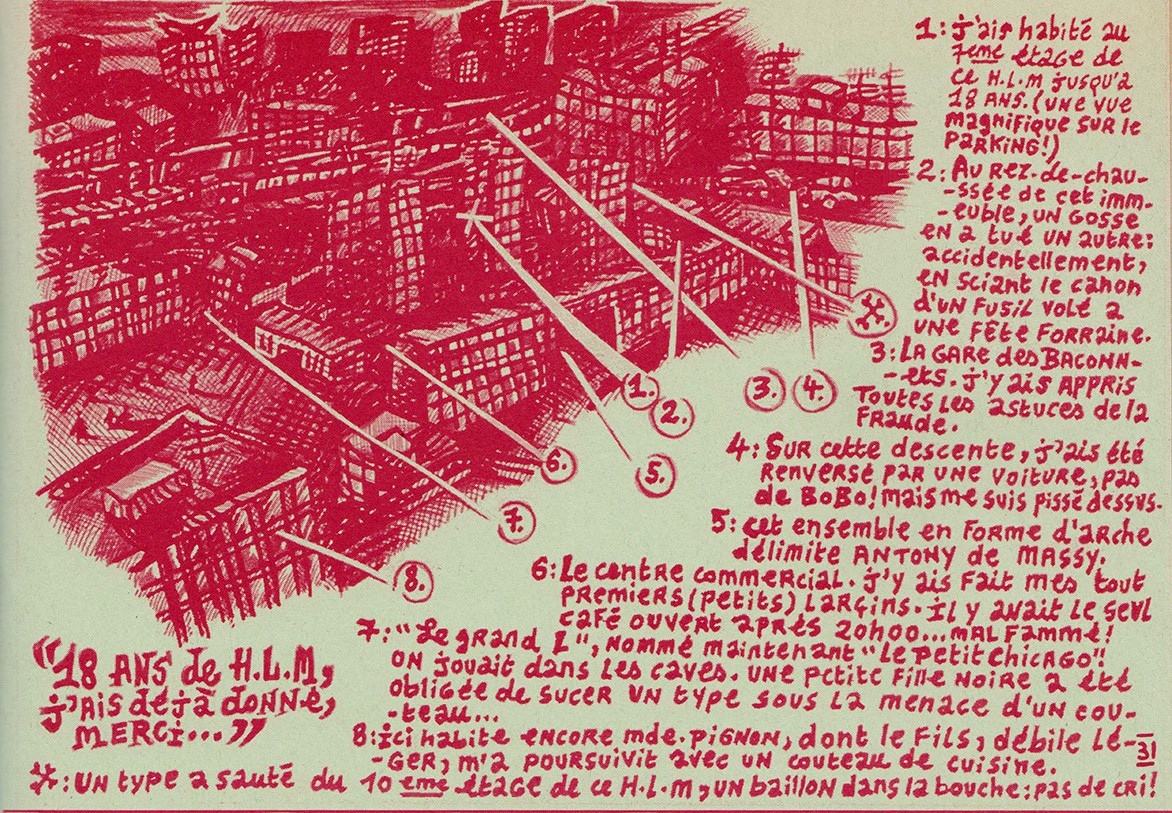 1: j'ais habité au
7eme étage de
ce H.L.M jusqu'a
18 ANS. (UNE VUE
magnifique sur le
PARKING!)
2: AU REZ-de-chau-
-ssée de cet imm-
-euble, un gosse
en a tué un autre:
accidentellement,
en sciant le canon
d'un fusil volé a
une fête forraine.
3: LA GARE des BACONN-
-ets. j'y ais appris
toutes les astuces de la
fraude.
4: Sur cette descente, j'ais été
renversé par une voiture, pas
de BoBo! mais me suis pissé dessus.
5: cet ensemble en forme d'arche
délimite ANTONY de MASSY.
6: Le centre commercial. j'y ais fait mes tout
premiers (petits) larçins. il y avait le seul
café ouvert aprés 20h00... mal fammé!
7: "Le grand L", nommé maintenant "Le petit chicago"!
On jouait dans les caves. une petite fille noire a été
obligée de sucer un type sous la menace d'un cou-
-teau...
8: ici habite encore mde. PIGNON, dont le fils, débile lé-
-ger, m'a poursuivit avec un couteau de cuisine.
*: un type a sauté du 10eme étage de ce H.L.M, un baillon dans la bouche: pas de cri!
"18 ANS de H.L.M,
j'ais déjà donné,
MERCI..."
1.
2.
3.
4.
*.
5.
6.
7.
8.
31